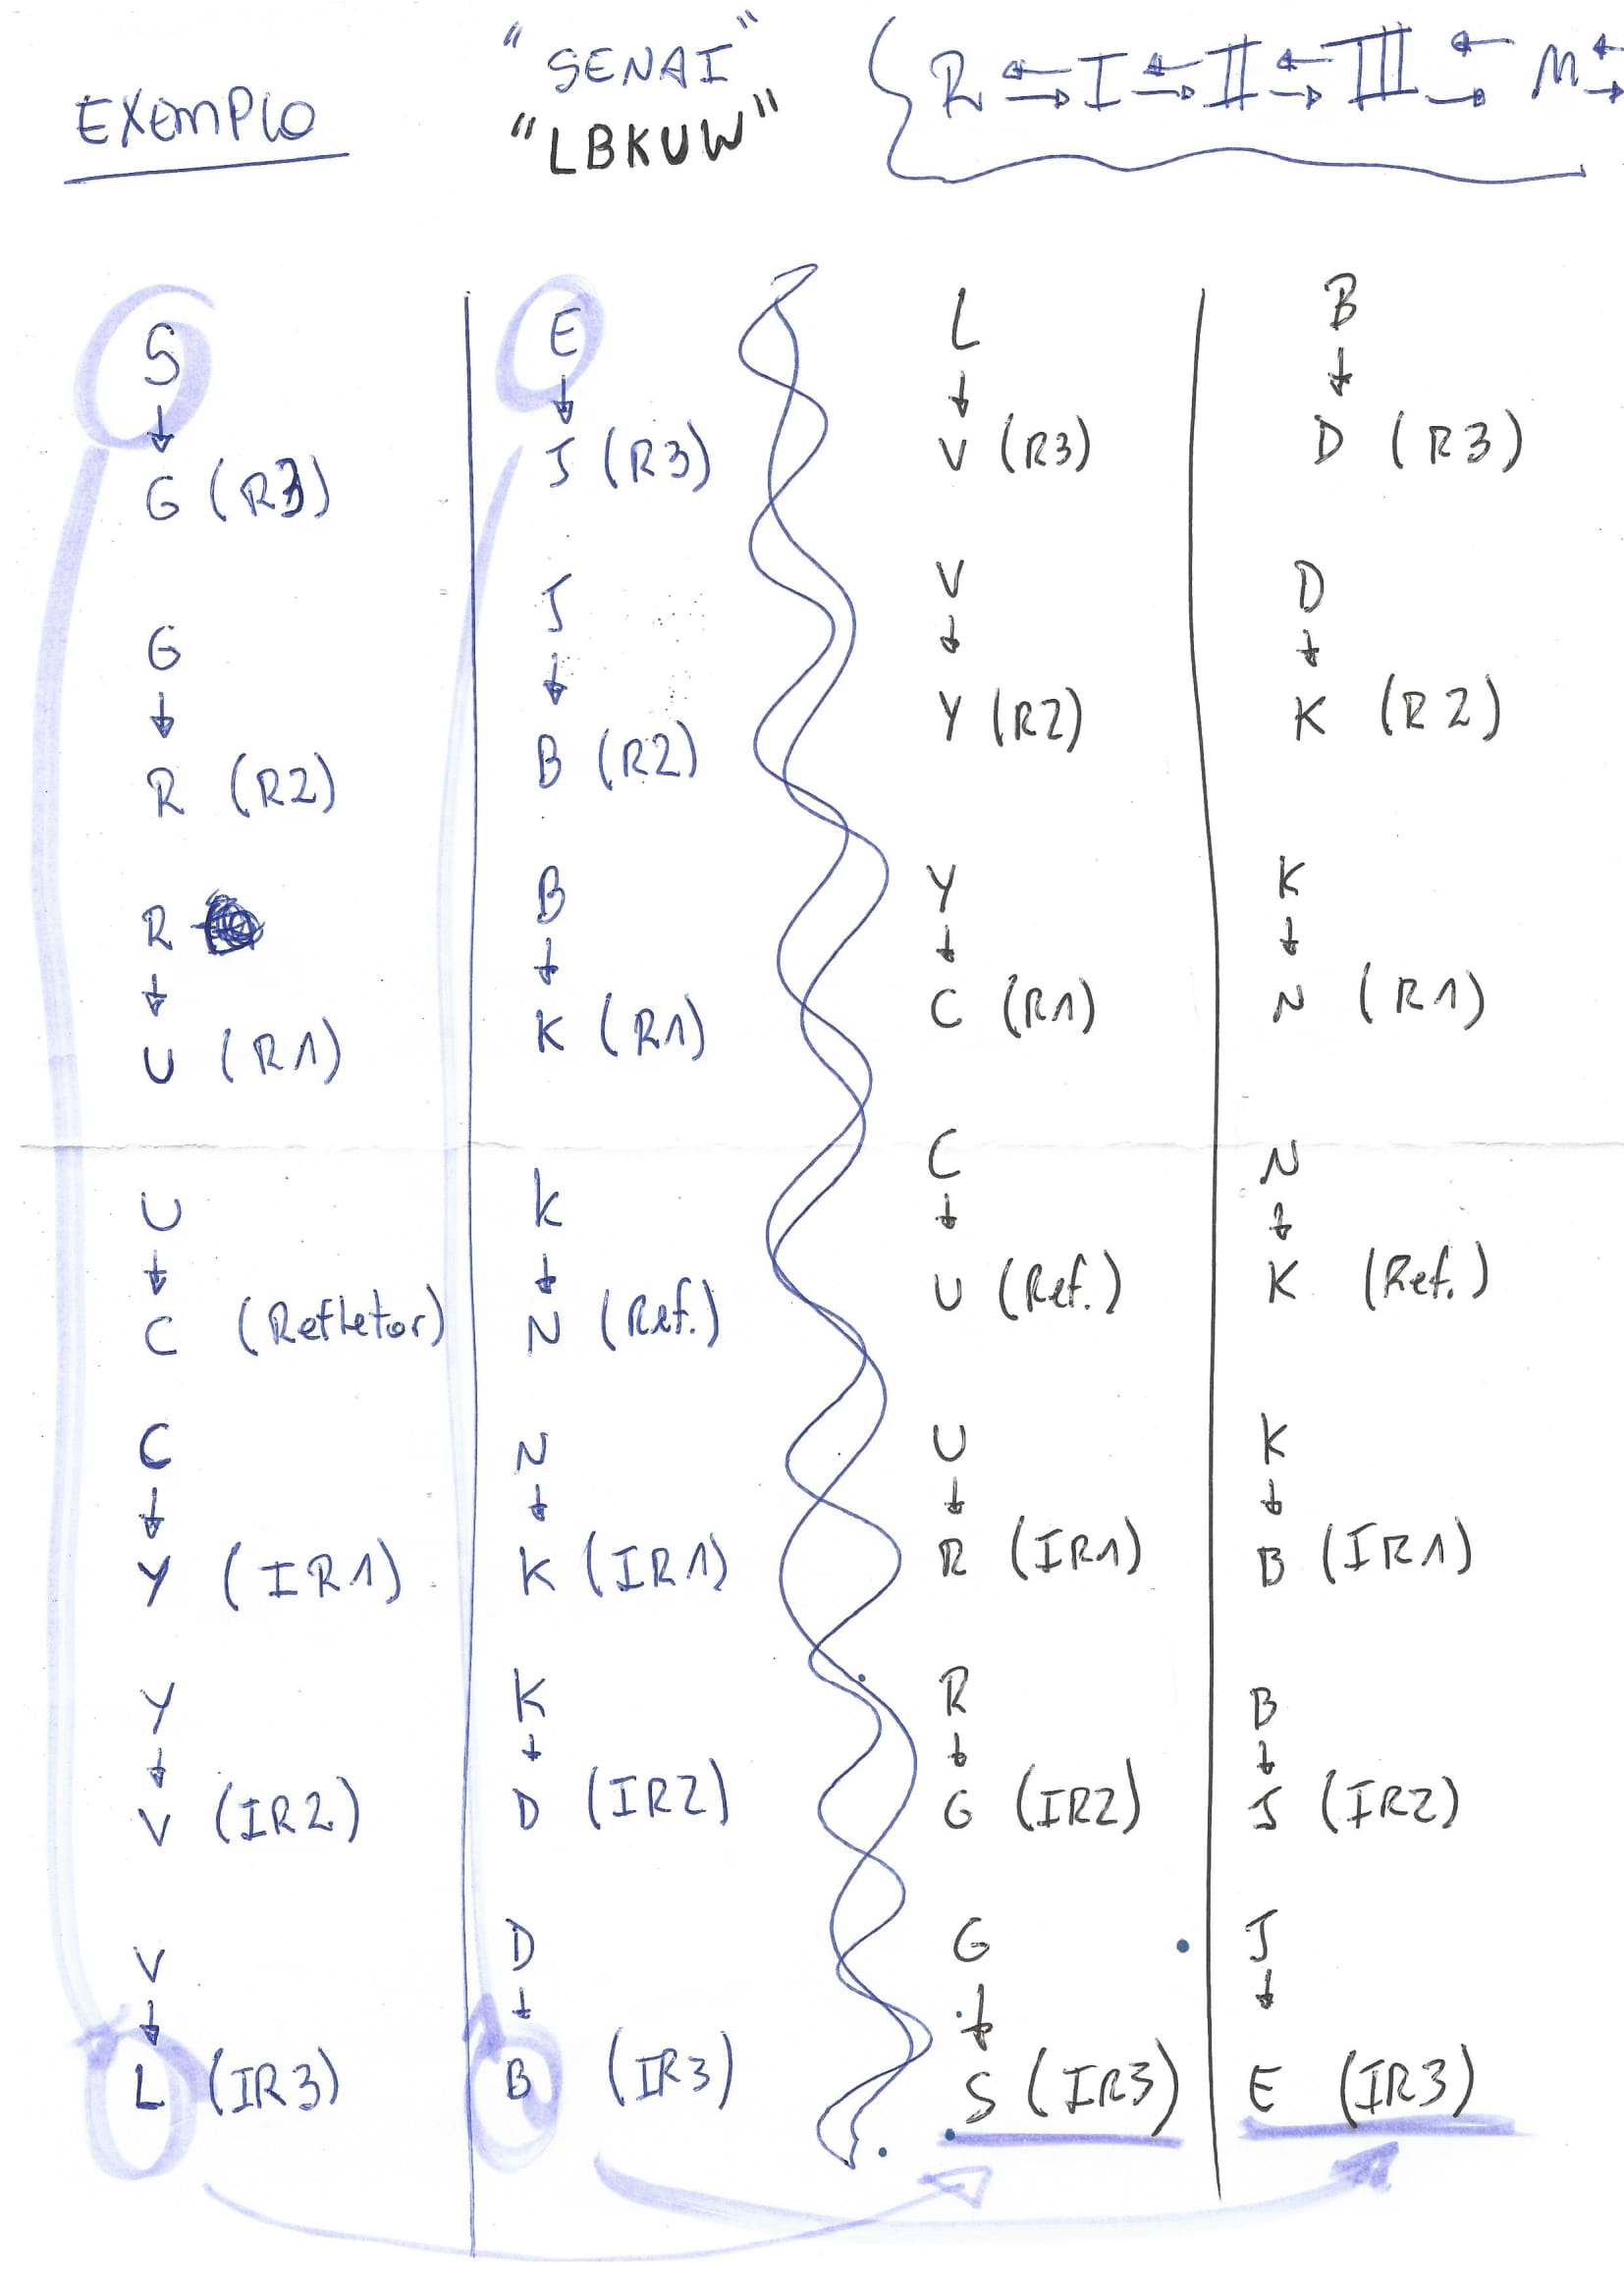 EXEMPLO
"SENAI"
"LBKUW"
R I II III M
S
G (R3)
G
R (R2)
R
U (R1)
U
C (Refletor)
C
Y (IR1)
Y
V (IR2)
V
L (IR3)
E
J (R3)
J
B (R2)
B
K (R1)
K
N (Ref.)
N
K (IR1)
K
D (IR2)
D
B (IR3)
L
V (R3)
V
Y (R2)
Y
C (R1)
C
U (Ref.)
U
R (IR1)
R
G (IR2)
G
S (IR3)
B
D (R3)
D
K (R2)
K
N (R1)
N
K (Ref.)
K
B (IR1)
B
J (IR2)
J
E (IR3)